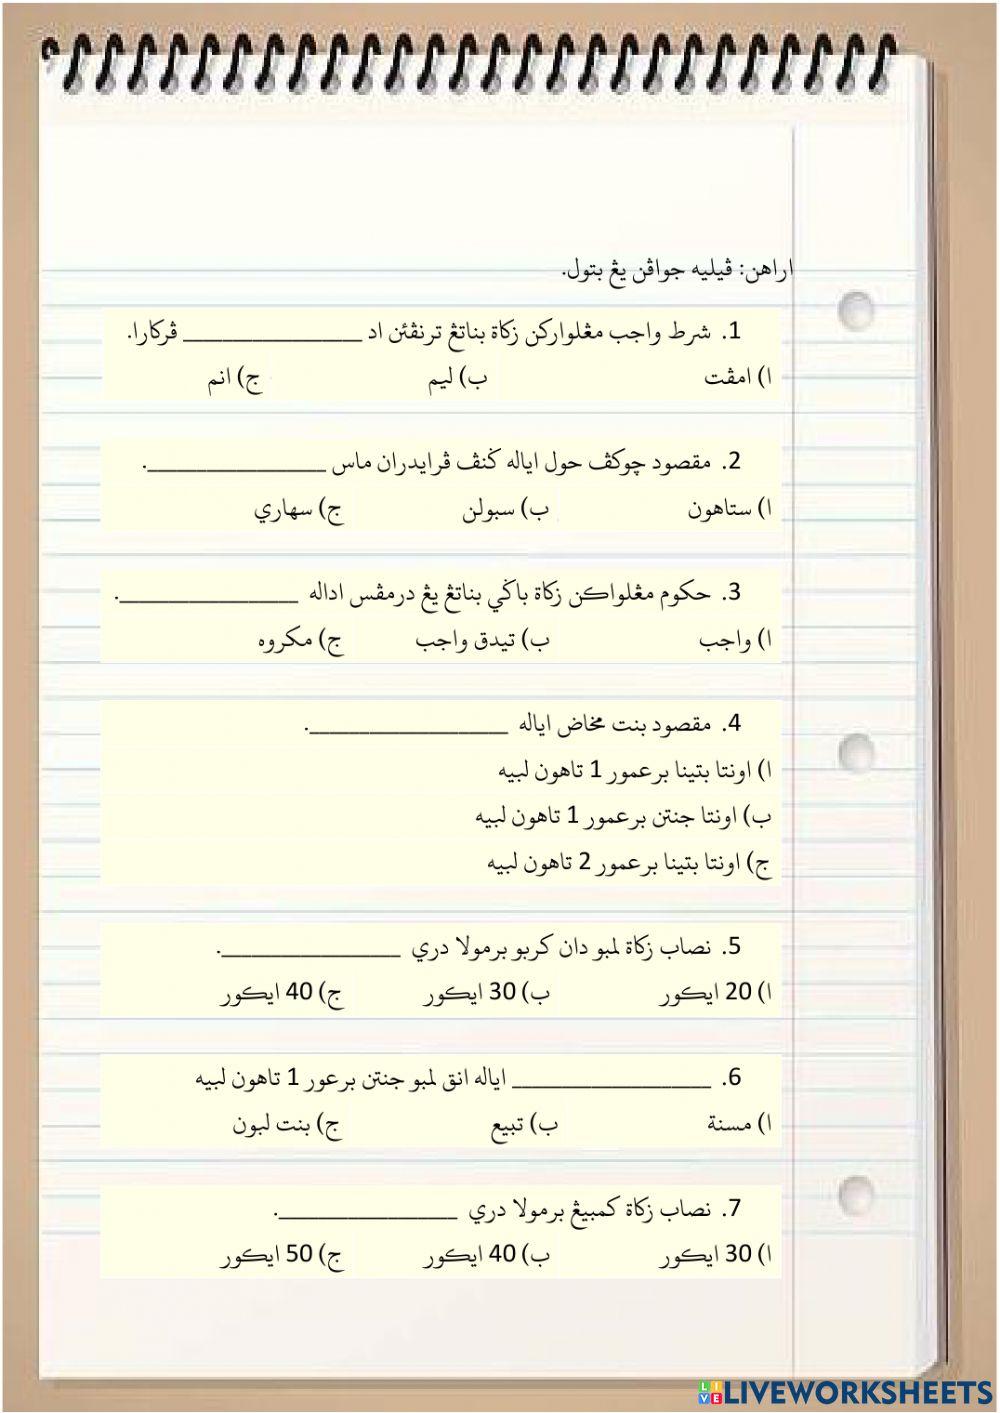 اراهن: ڤيليه جواڤن يڠ بتول.
1. شرط واجب مڠلوارکن زکاة بناتڠ ترنقئن اد __________________ ڤرکارا.
ا) امڤت ب) ليم ج) انم
2. مقصود چوکڤ حول اياله ݢنڤ ڤرايدران ماس __________________.
ا) ستاهون ب) سبولن ج) سهاري
3. حکوم مڠلواکن زکاة باݢي بناتڠ يڠ درمڤس اداله __________________.
ا) واجب ب) تيدق واجب ج) مکروه
4. مقصود بنت مخاض اياله ____________________.
ا) اونتا بتينا برعمور 1 تاهون لبيه
ب) اونتا جنتن برعمور 1 تاهون لبيه
ج) اونتا بتينا برعمور 2 تاهون لبيه
5. نصاب زکاة لمبو دان کربو برمولا دري __________________.
ا) 20 ايکور ب) 30 ايکور ج) 40 ايکور
6. ____________________ اياله انق لمبو جنتن برعور 1 تاهون لبيه
ا) مسنة ب) تبيع ج) بنت لبون
7. نصاب زکاة کمبيڠ برمولا دري __________________.
ا) 30 ايکور ب) 40 ايکور ج) 50 ايکور
LIVE LIVEWORKSHEETS